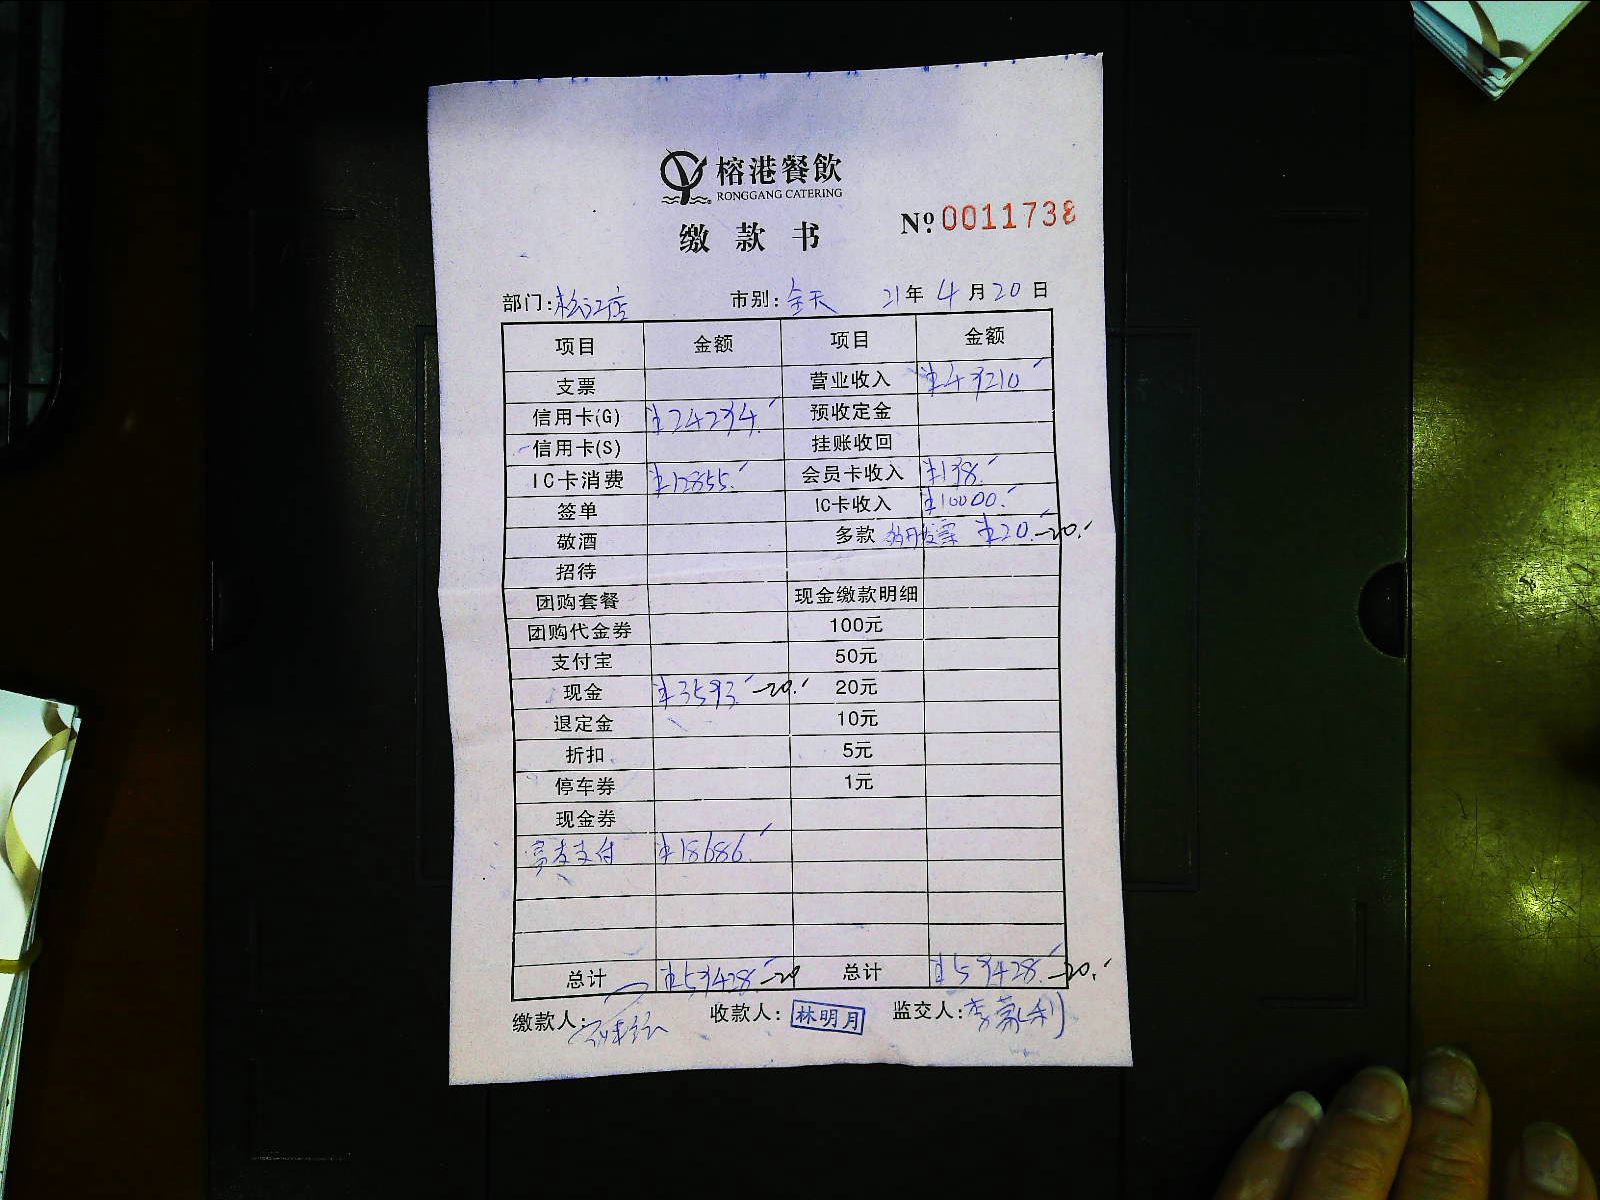 榕港餐飲
RONGGANG CATERING
缴款书
№ 0011738
部门: 松江店 市别: 全天 21年 4月 20日
项目 金额 项目 金额
支票 营业收入 ¥49210
信用卡(G) ¥24294. 预收定金
信用卡(S) 挂账收回
IC卡消费 ¥12855. 会员卡收入 ¥198.
签单 IC卡收入 ¥10000.
敬酒 多款 发票 ¥20. -20.
招待
团购套餐 现金缴款明细
团购代金券 100元
支付宝 50元
现金 ¥3593. -20. 20元
退定金 10元
折扣 5元
停车券 1元
现金券
富友支付 ¥18686.
总计 ¥59428. -20 总计 ¥59428. -20.
缴款人: 收款人: 林明月 监交人: 李